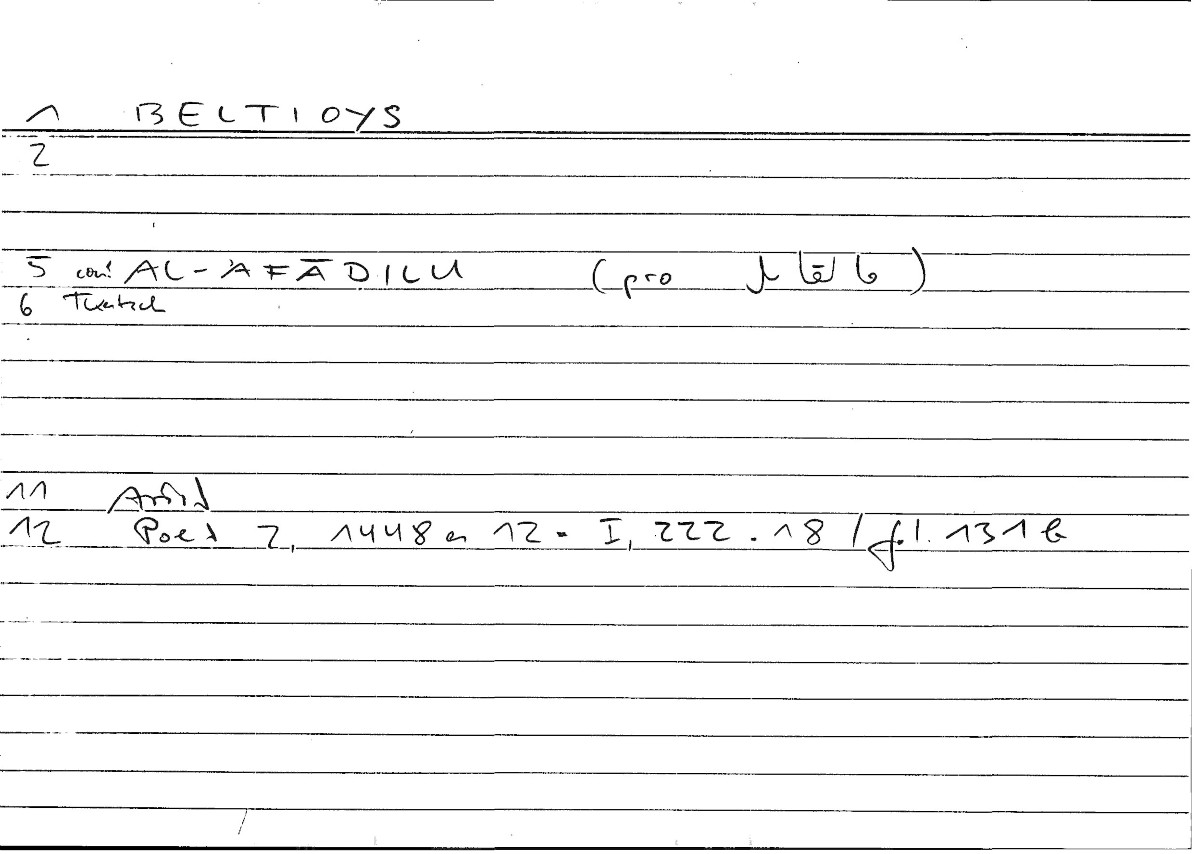 1 BELTIOYS
2
5 coni. AL-'AFĀDILU (pro )
6 Tkatsch
11 Arist
12 Poet 2, 1448 a 12 = I, 222.18 / fol. 131 b